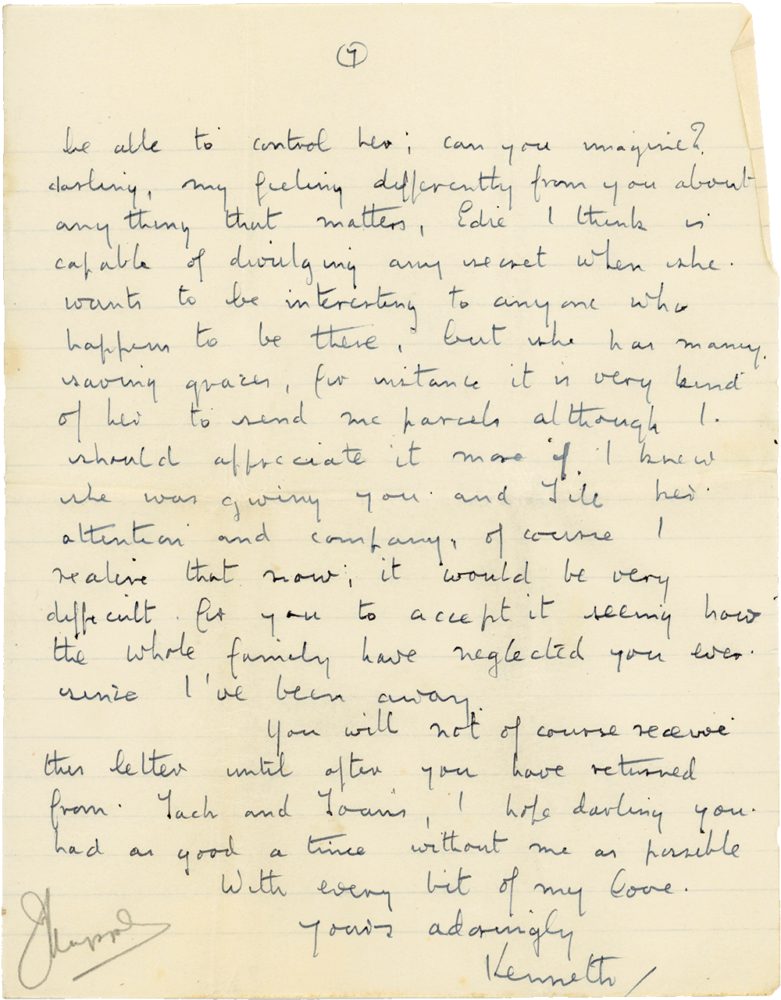 7
be able to control her; can you imagine?
darling, my feeling differently from you about
any thing that matters, Edie I think is
capable of divulging any secret when she
wants to be interesting to anyone who
happens to be there, but she has many
saving graces, for instance it is very kind
of her to send me parcels although I
should appreciate it more if I knew
she was giving you and her
attention and company, of course I
realise that now, it would be very
difficult for you to accept it seeing how
the whole family have neglected you ever
since I've been away.
You will not of course receive
this letter until after you have returned
from Jack and Joan's, I hope darling you
had as good a time without me as possible
With every bit of my love.
yours adoringly
Kenneth